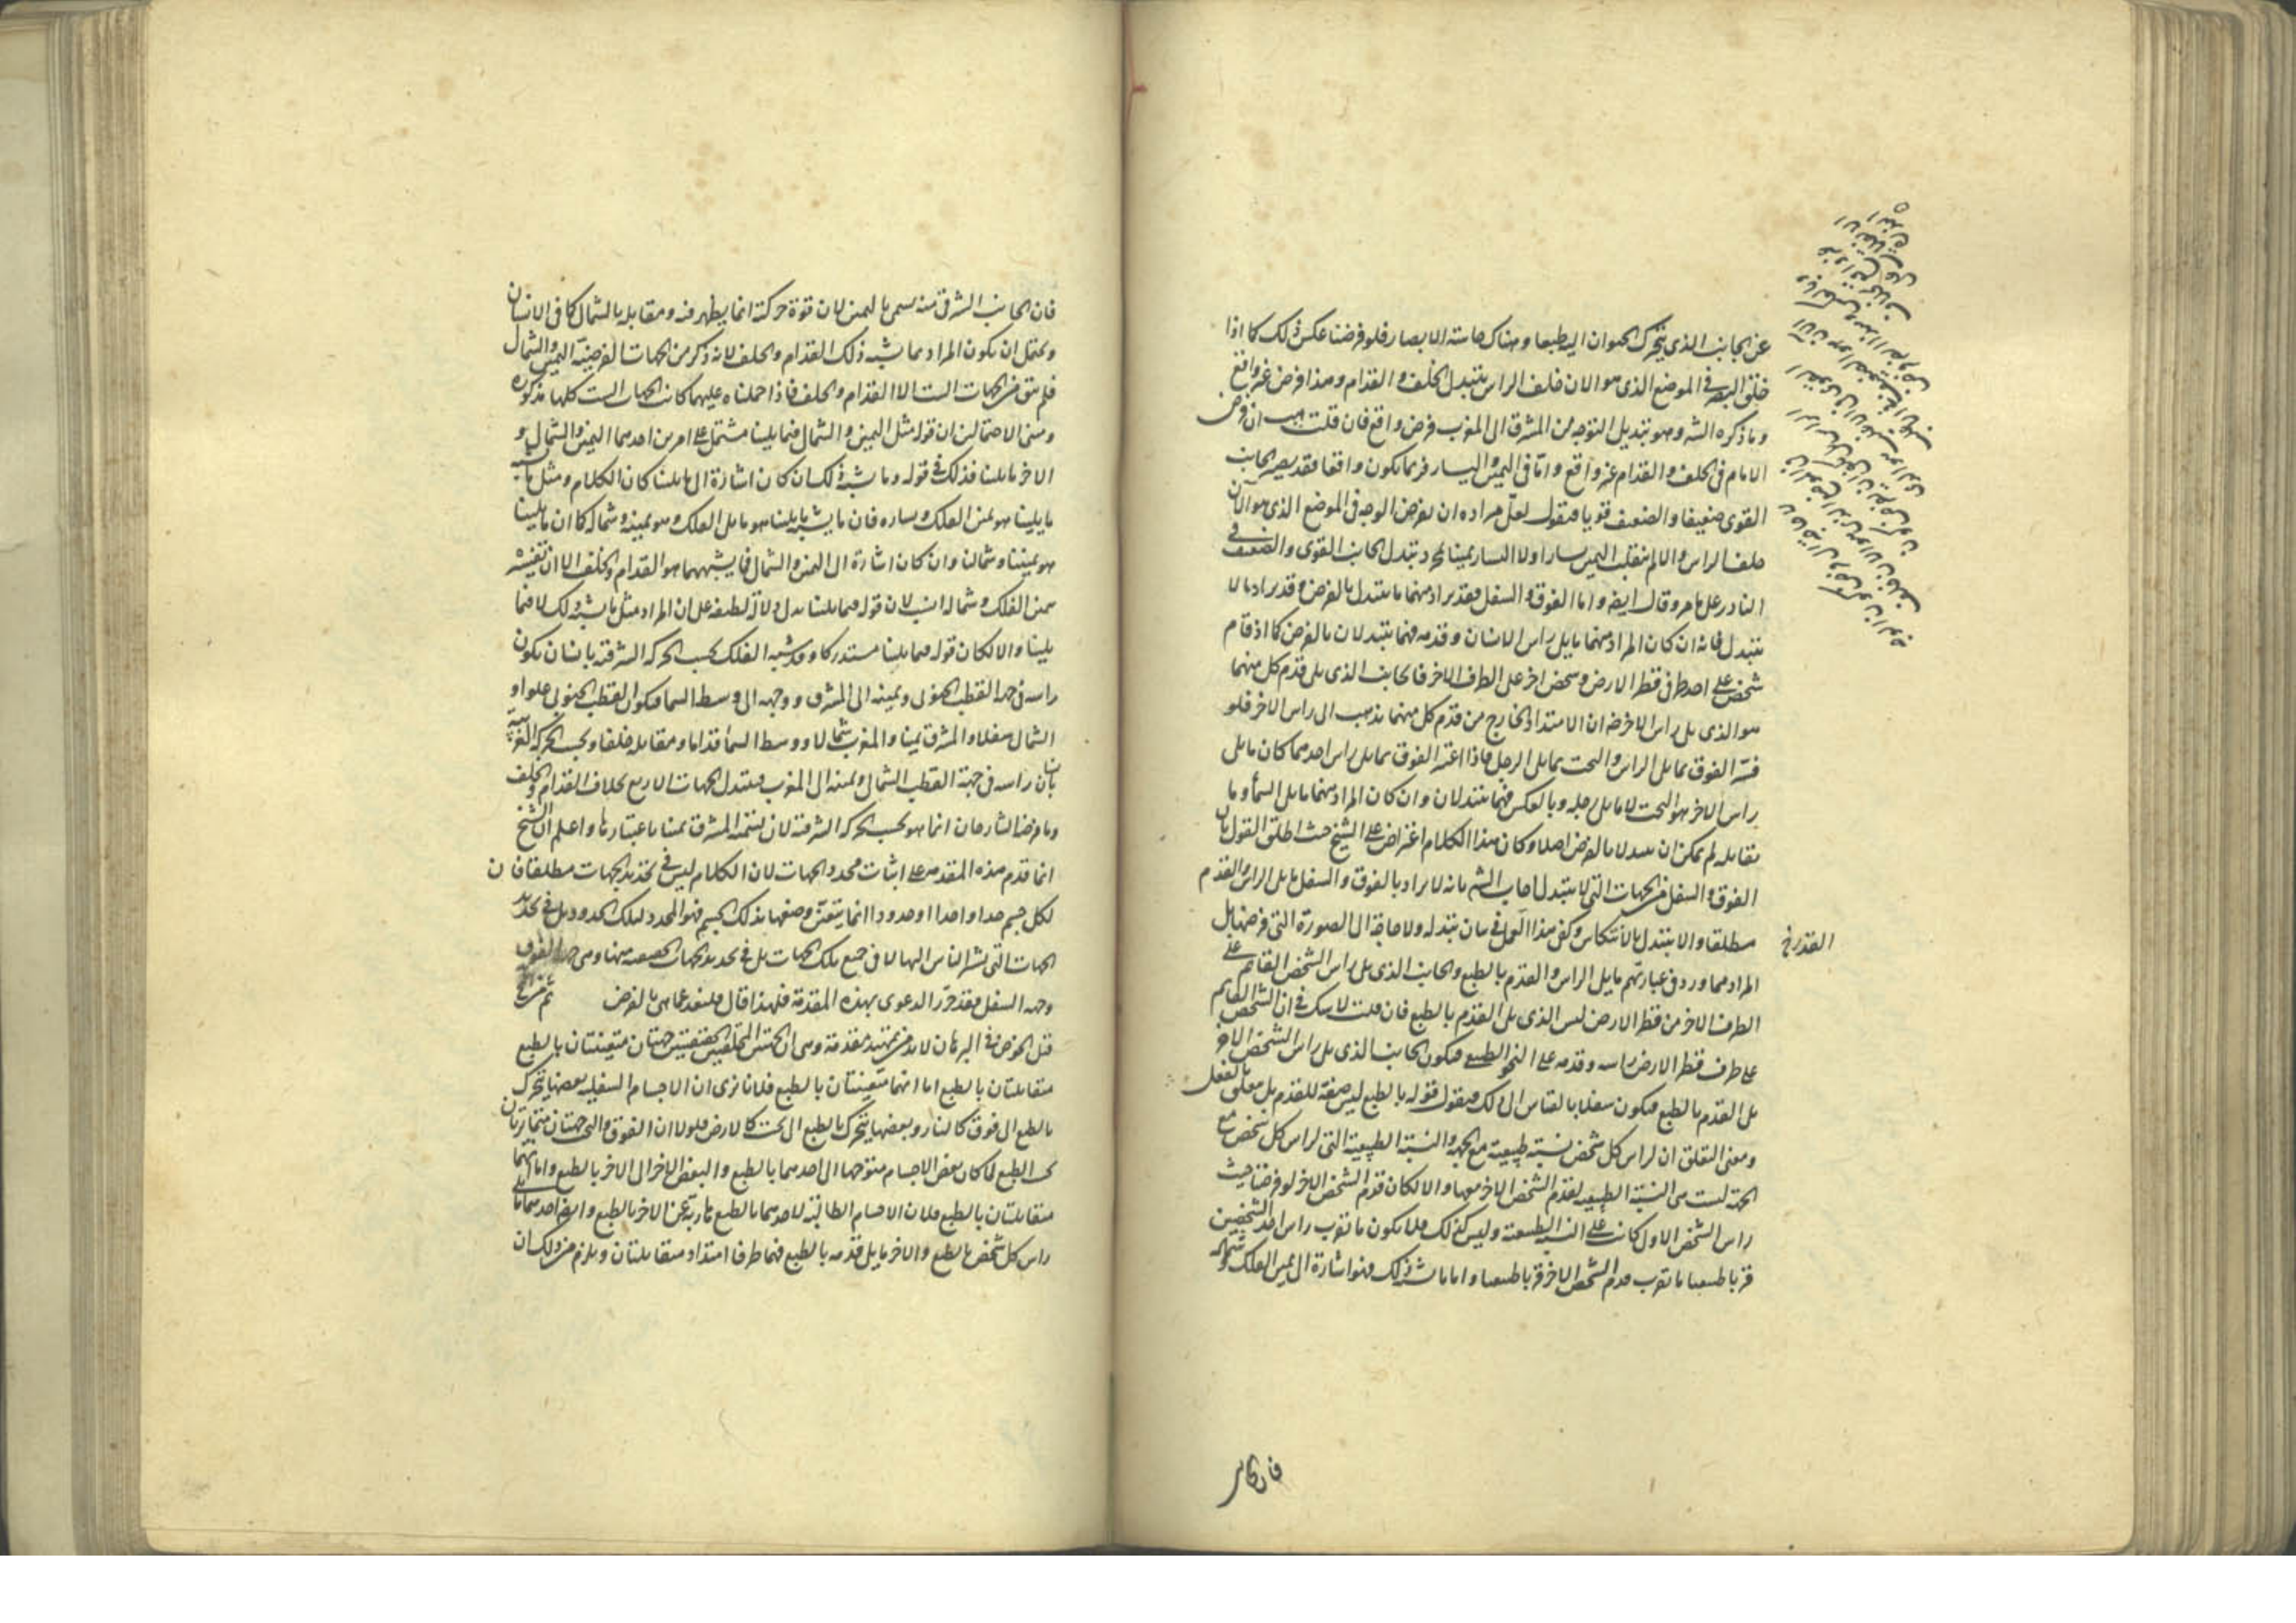 عن الجانب الذى يتحرك الحيوان اليه طبعا وهناك حاسة الابصار فلو فرضنا عكس ذلك كما اذا
خلق البصر فى الموضع الذى هو الان خلف الراس يتبدل الخلف والقدام وهذا فرض غير واقع
وما ذكره الش وهو تبديل التوجه من المشرق الى المغرب فرض واقع فان قلت هب ان فرض
الامام فى الخلف والقدام غير واقع واما فى اليمين واليسار فربما يكون واقعا فقد يصير الجانب
القوى ضعيفا والضعيف قويا فنقول لعل مراده ان يفرض الوجه فى الموضع الذى هو الآن
خلف الراس والا لم ينقلب اليمين يسارا ولا اليسار يمينا لمجرد تبدل الجانب القوى والضعيف فى
النادر على ما مر وقال ايضا واما الفوق والسفل فقد يراد منهما ما يتبدل بالفرض وقد يراد ما لا
يتبدل فانه ان كان المراد منهما ما يلى راس الانسان وقدمه فهما يتبدلان بالفرض كما اذا قام
شخص على احد طرفى قطر الارض وشخص اخر على الطرف الاخر فالجانب الذى يلى قدم كل منهما
هو الذى يلى راس الاخر ضرورة ان الامتداد الخارج من قدم كل منهما يذهب الى راس الاخر فلو
فسر الفوق بما يلى الراس والتحت بما يلى الرجل فاذا اعتبر الفوق بما يلى راس احدهما كان ما يلى
راس الاخر هو التحت لا ما يلى رجله وبالعكس فهما يتبدلان وان كان المراد منهما ما يلى السماء وما
يقابله لم يمكن ان يتبدلا بالفرض اصلا وكان هذا الكلام اعتراض على الشيخ حيث اطلق القول بان
الفوق والسفل من الجهات التى لا يتبدل اجاب الش بانه لا يراد بالفوق والسفل ما يلى الراس والقدم
مطلقا والا يتبدل بالانتكاس وكفى هذا العمل فى بيان تبدله ولا حاجة الى الصورة التى فرضها بل
القدر خ
المراد مما ورد فى عباراتهم ما يلى الراس والقدم بالطبع والجانب الذى يلى راس الشخص القائم على
الطرف الاخر من قطر الارض ليس الذى يلى القدم بالطبع فان قلت لا شك فى ان الشخص القائم
على طرف قطر الارض راسه وقدمه على النحو الطبيعى فيكون الجانب الذى يلى راس الشخص الاخر
يلى القدم بالطبع فيكون سفلا بالقياس الى ذلك فنقول قوله بالطبع ليس صفة للقدم بل معلق بالفعل
ومعنى التعلق ان لراس كل شخص نسبة طبيعية مع الجهة والنسبة الطبيعية التى لراس كل شخص مع
الجهة ليست هى النسبة الطبيعية لقدم الشخص الاخر معها والا لكان قدم الشخص الاخر لو فرضنا حيث
راس الشخص الاول كانت على النسبة الطبيعية وليس كذلك فلا يكون ما يقرب راس احد الشخصين
قربا طبيعيا ما يقرب قدم الشخص الاخر قربا طبيعيا واما ما يشبه ذلك فهو اشارة الى يمين الفلك وشماله
فان الجانب
فان الجانب الشرقى منه يسمى باليمين لان قوة حركته انما يظهر منه ومقابله بالشمال كما فى الانسان
ويحتمل ان يكون المراد مما يشبه ذلك القدام والخلف لانه ذكر من الجهات الفرضية اليمين والشمال
فلم يبق من الجهات الست الا القدام والخلف فاذا حملناه عليهما كانت الجهات الست كلها مذكورة
ومبنى الاحتمالين ان قوله مثل اليمين والشمال فيما يلينا مشتمل على امرين احدهما اليمين والشمال و
الاخر ما يلينا فذلك فى قوله وما يشبه ذلك ان كان اشارة الى ما يلينا كان الكلام ومثل ما يشبه
ما يلينا هو يمين الفلك ويساره فان ما يشبه ما يلينا هو ما يلى الفلك وهو يمينه وشماله كما ان ما يلينا
هو يميننا وشمالنا وان كان اشارة الى اليمين والشمال فما يشبههما هو القدام والخلف الا ان تفسيره
بيمين الفلك وشماله انسب لان قوله فيما يلينا يدل دلالة لطيفة على ان المراد مثل ما يشبه ذلك لا فيما
يلينا والا لكان قوله فيما يلينا مستدركا وقد شبه الفلك بحسب الحركة الشرقية بانسان يكون
راسه فى جهة القطب الجنوبى ويمينه الى المشرق ووجهه الى وسط السما فيكون القطب الجنوبى علوا و
الشمالى سفلا والمشرق يمينا والمغرب شمالا ووسط السماء قداما ومقابله خلفا وبحسب الحركة الغربية
بان راسه فى جهة القطب الشمالى ويمينه الى المغرب فيتبدل الجهات الاربع بخلاف القدام والخلف
وما فرضه الشارحان انما هو بحسب الحركة الشرقية لان تسمية المشرق يمينا باعتبارها واعلم ان الشيخ
انما قدم هذه المقدمة على اثبات محدد الجهات لان الكلام ليس فى تحديد الجهات مطلقا فان
لكل جسم حدا واحدا او حدودا انما يتعين وضعها بذلك الجسم فهو المحدد لتلك الحدود بل فى تحديد
الجهات التى يشير الناس اليها لا فى جميع تلك الجهات بل فى تحديد الجهات الحقيقية منها وهى جهة الفوق
وجهة السفل فقد حرر الدعوى بهذه المقدمة فلهذا قال فلنعد عما هى بالفرض ثم من خ
قبل الخوض فى البرهان لا بد من تمهيد مقدمة وهى ان الجهتين الحقيقيتين جهتان متعينتان بالطبع
متقابلتان بالطبع اما انهما متعينتان بالطبع فلانا نرى ان الاجسام السفلية بعضها يتحرك
بالطبع الى فوق كالنار وبعضها يتحرك بالطبع الى تحت كالارض فلولا ان الفوق والتحت جهتان متمايزتان
بحسب الطبع لما كان بعض الاجسام متوجها الى احدهما بالطبع والبعض الاخر الى الاخر بالطبع واما انهما
متقابلتان بالطبع فلان الاجسام الطالبة لاحدهما بالطبع هاربة عن الاخر بالطبع وايضا احدهما ما يلى
راس كل شخص بالطبع والاخر ما يلى قدمه بالطبع فهما طرفا امتداد متقابلتان ويلزم من ذلك ان